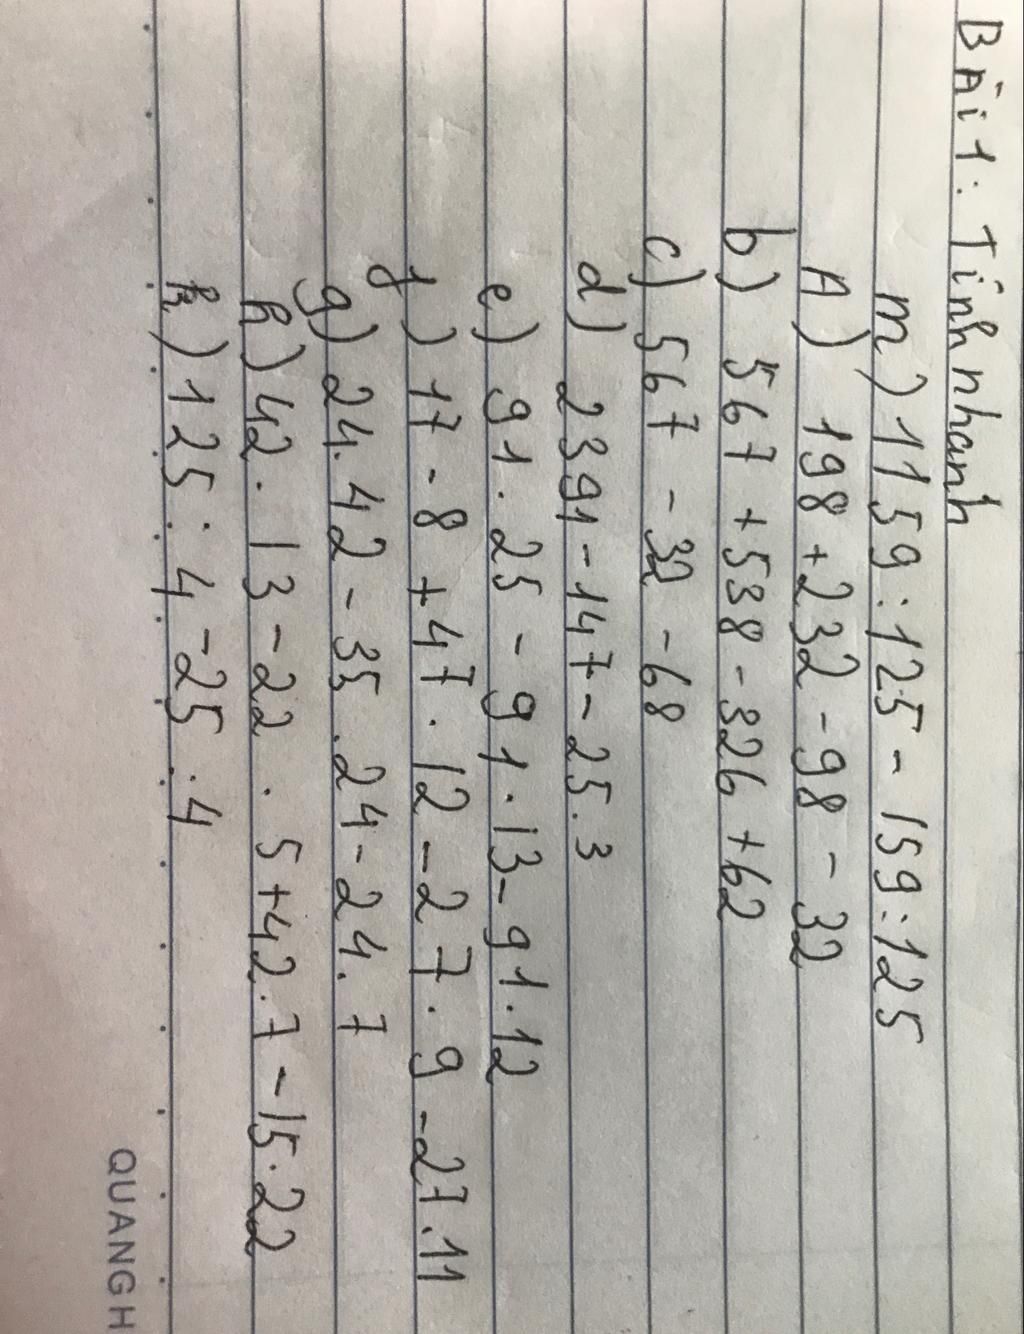 Bài 1: Tính nhanh
m) 1159 : 125 - 159 : 125
A) 198 + 232 - 98 - 32
b) 567 + 538 - 326 + 62
c) 567 - 32 - 68
d) 2391 - 147 - 25.3
e) 91.25 - 91.13 - 91.12
f) 17-8 + 47.12 - 27.9 - 27.11
g) 24.42 - 35.24 - 24.7
h) 42.13 - 22.5 + 42.7 - 15.22
k) 125 : 4 - 25 : 4
QUANGH